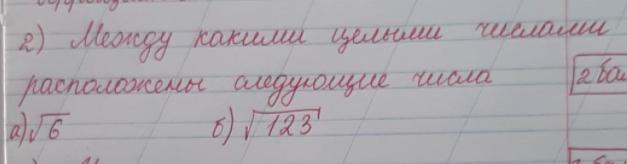 2) Между какими целыми числами
расположены следующие числа
2 бал
а) √6 б) √123